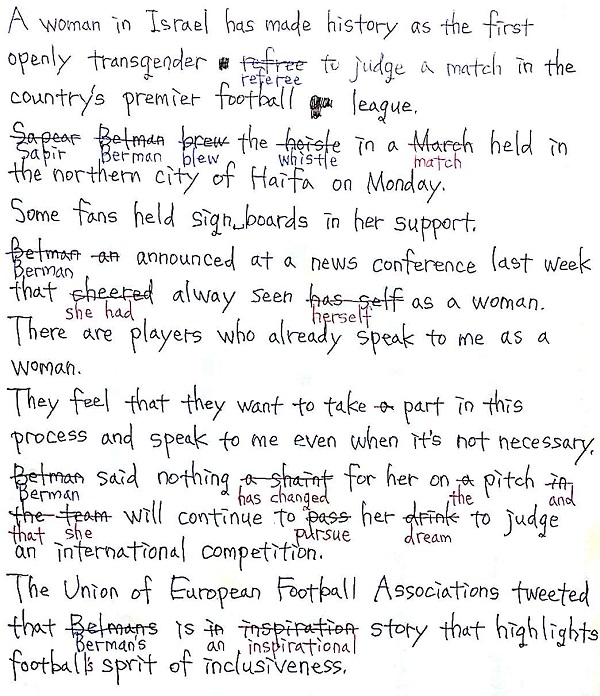 A woman in Israel has made history as the first
openly transgender refree to judge a match in the
referee
country's premier football league.
Sapear Betman brew the hoisle in a March held in
sapir Berman blew whistle match
the northern city of Haifa on Monday.
Some fans held sign boards in her support.
Betman an announced at a news conference last week
Berman
that cheered alway seen has self as a woman.
she had herself
There are players who already speak to me as a
woman.
They feel that they want to take a part in this
process and speak to me even when it's not necessary.
Betman said nothing a shaint for her on a pitch in
Berman has changed the and
the team will continue to pass her drink to judge
that she pursue dream
an international competition.
The Union of European Football Associations tweeted
that Belmans is in inspiration story that highlights
Berman's an inspirational
football's sprit of inclusiveness.